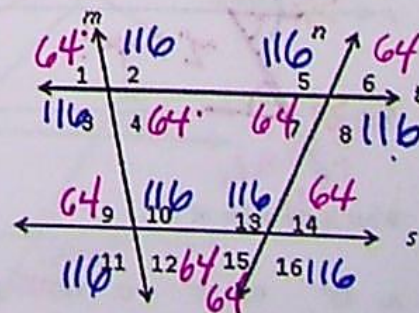 m
64 116 116 n 64
1 2 5 6
116 3 4 64 64 7 8 116
64 9 10 116 116 13 14 64
s
116 11 12 64 15 16 116
64